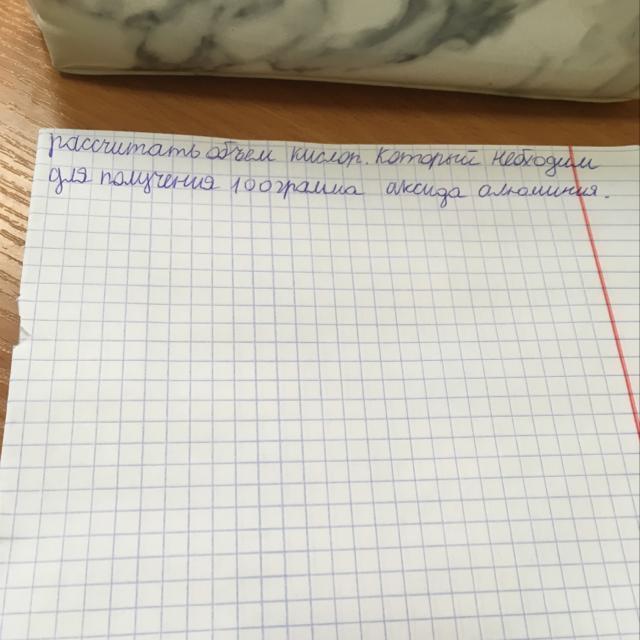 рассчитать объем кислор. который небходим
для получения 100грамма оксида алюминия.